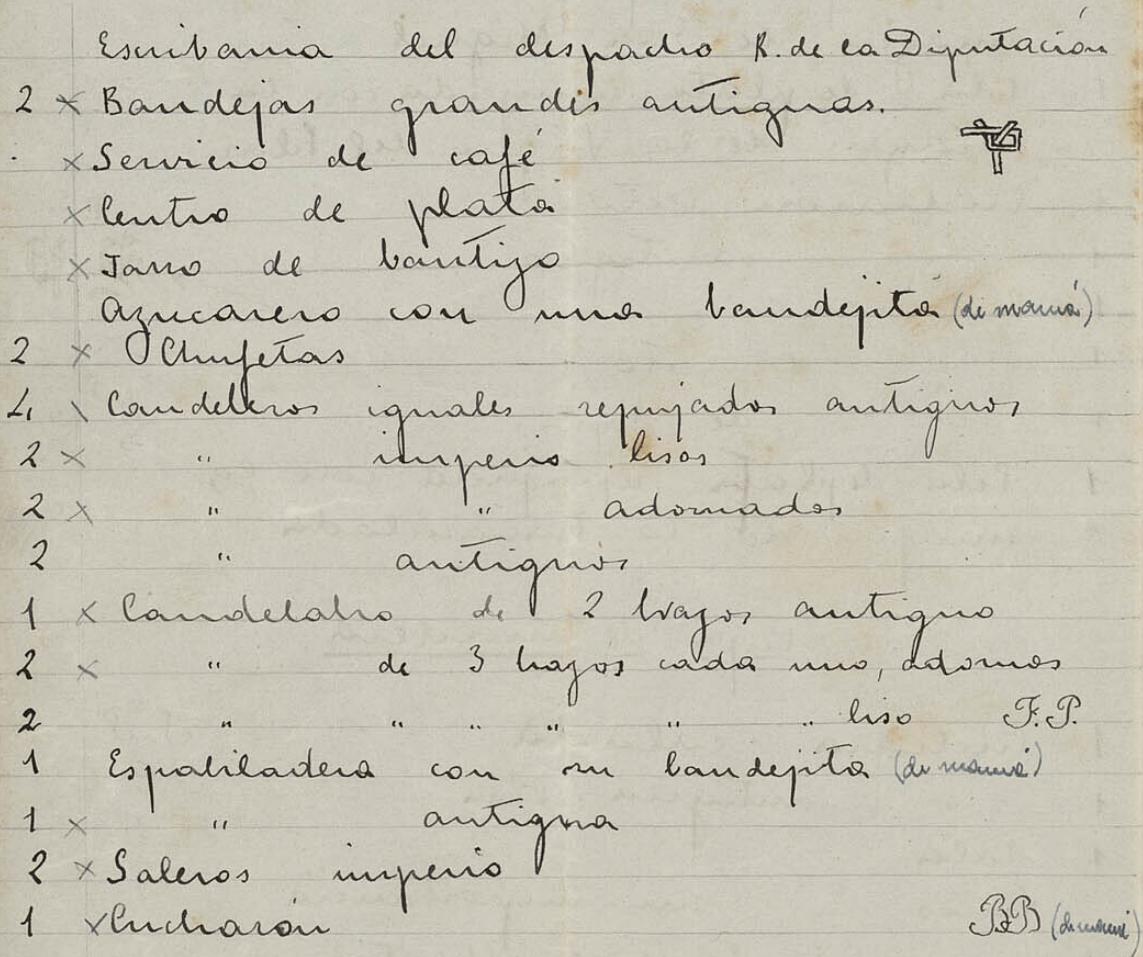 Escribania del despacho R. de la Diputación
2 × Bandejas grandes antiguas.
× Servicio de café
× Centro de plata
× Jarro de bautizo
Azucarero con una bandejita (de mamá)
2 × Chufetas
4 \ Candeleros iguales repujados antiguos
2 × " imperio lisos
2 × " " adornados
2 " antiguos
1 × Candelabro de 2 brazos antiguo
2 × " de 3 brazos cada uno, adornos
2 " " " " " " liso F.P.
1 Espabiladera con su bandejita (de mamá)
1 × " antigua
2 × Saleros imperio
1 × Cucharón BB (de mamá)